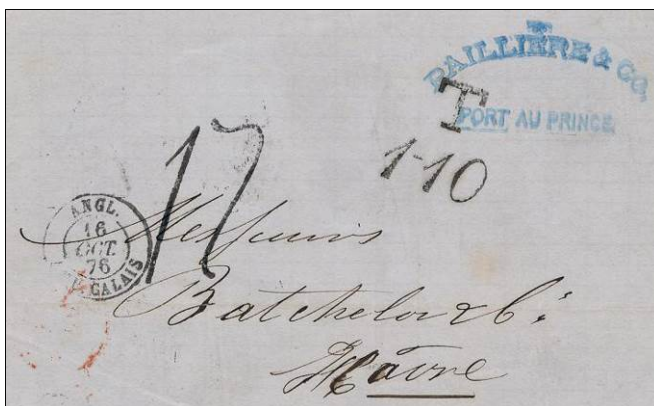 BAILLIÈRE & CO.
PORT AU PRINCE
T
1-10
17
ANGL.
16
OCT.
76
CALAIS
Messieurs
Batchelor & Cº
Hâvre